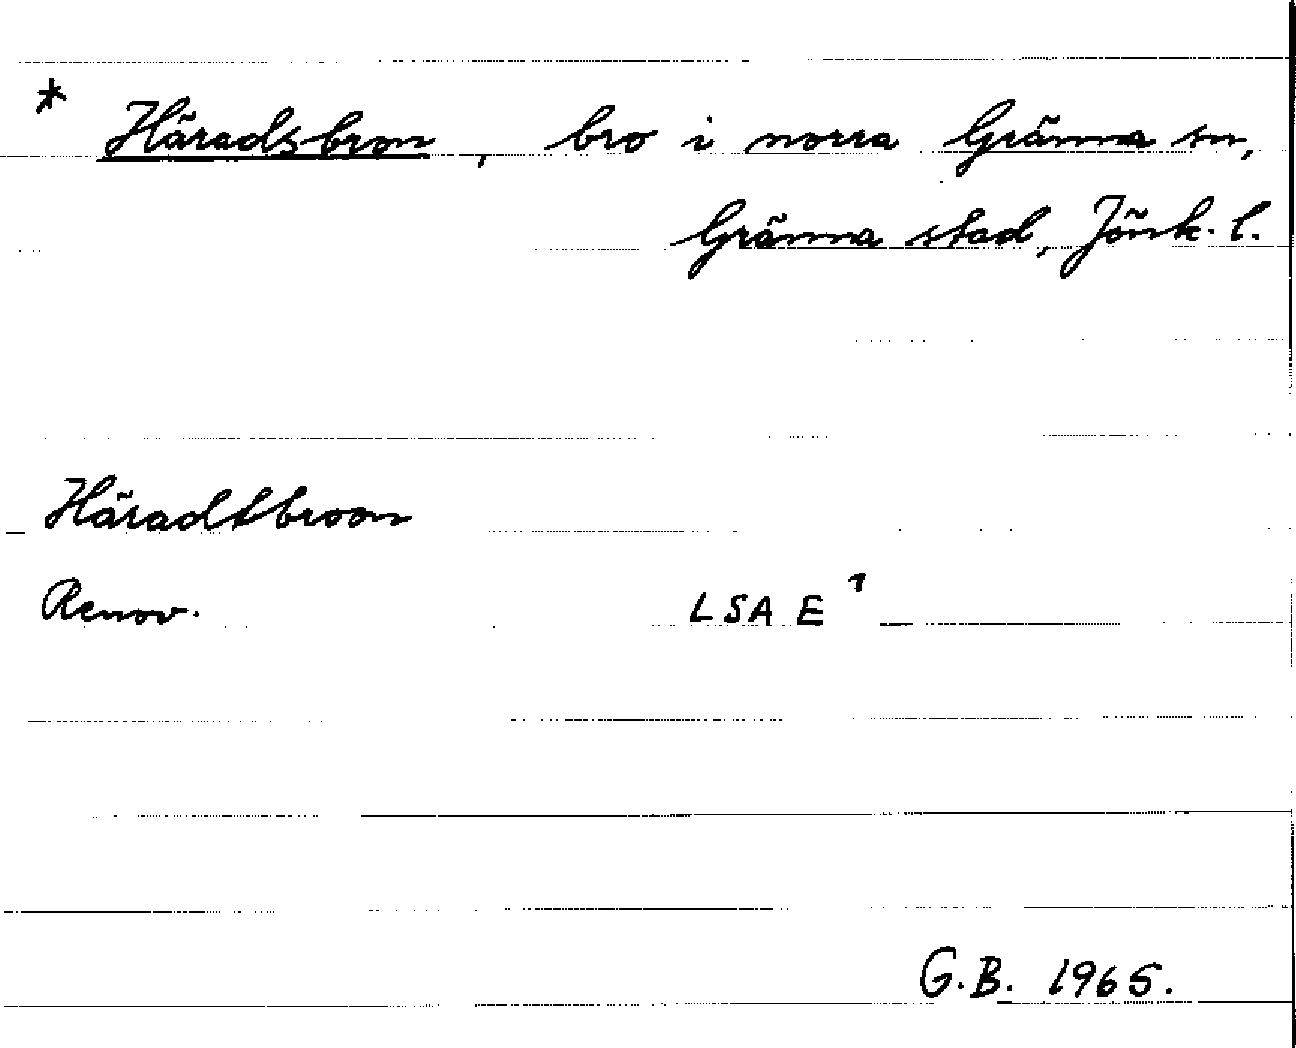 * Häradsbron, bro i norra Gränna sn,
Gränna stad, Jönk. l.
Häradtbroon
Renov. LSA E¹
G.B. 1965.